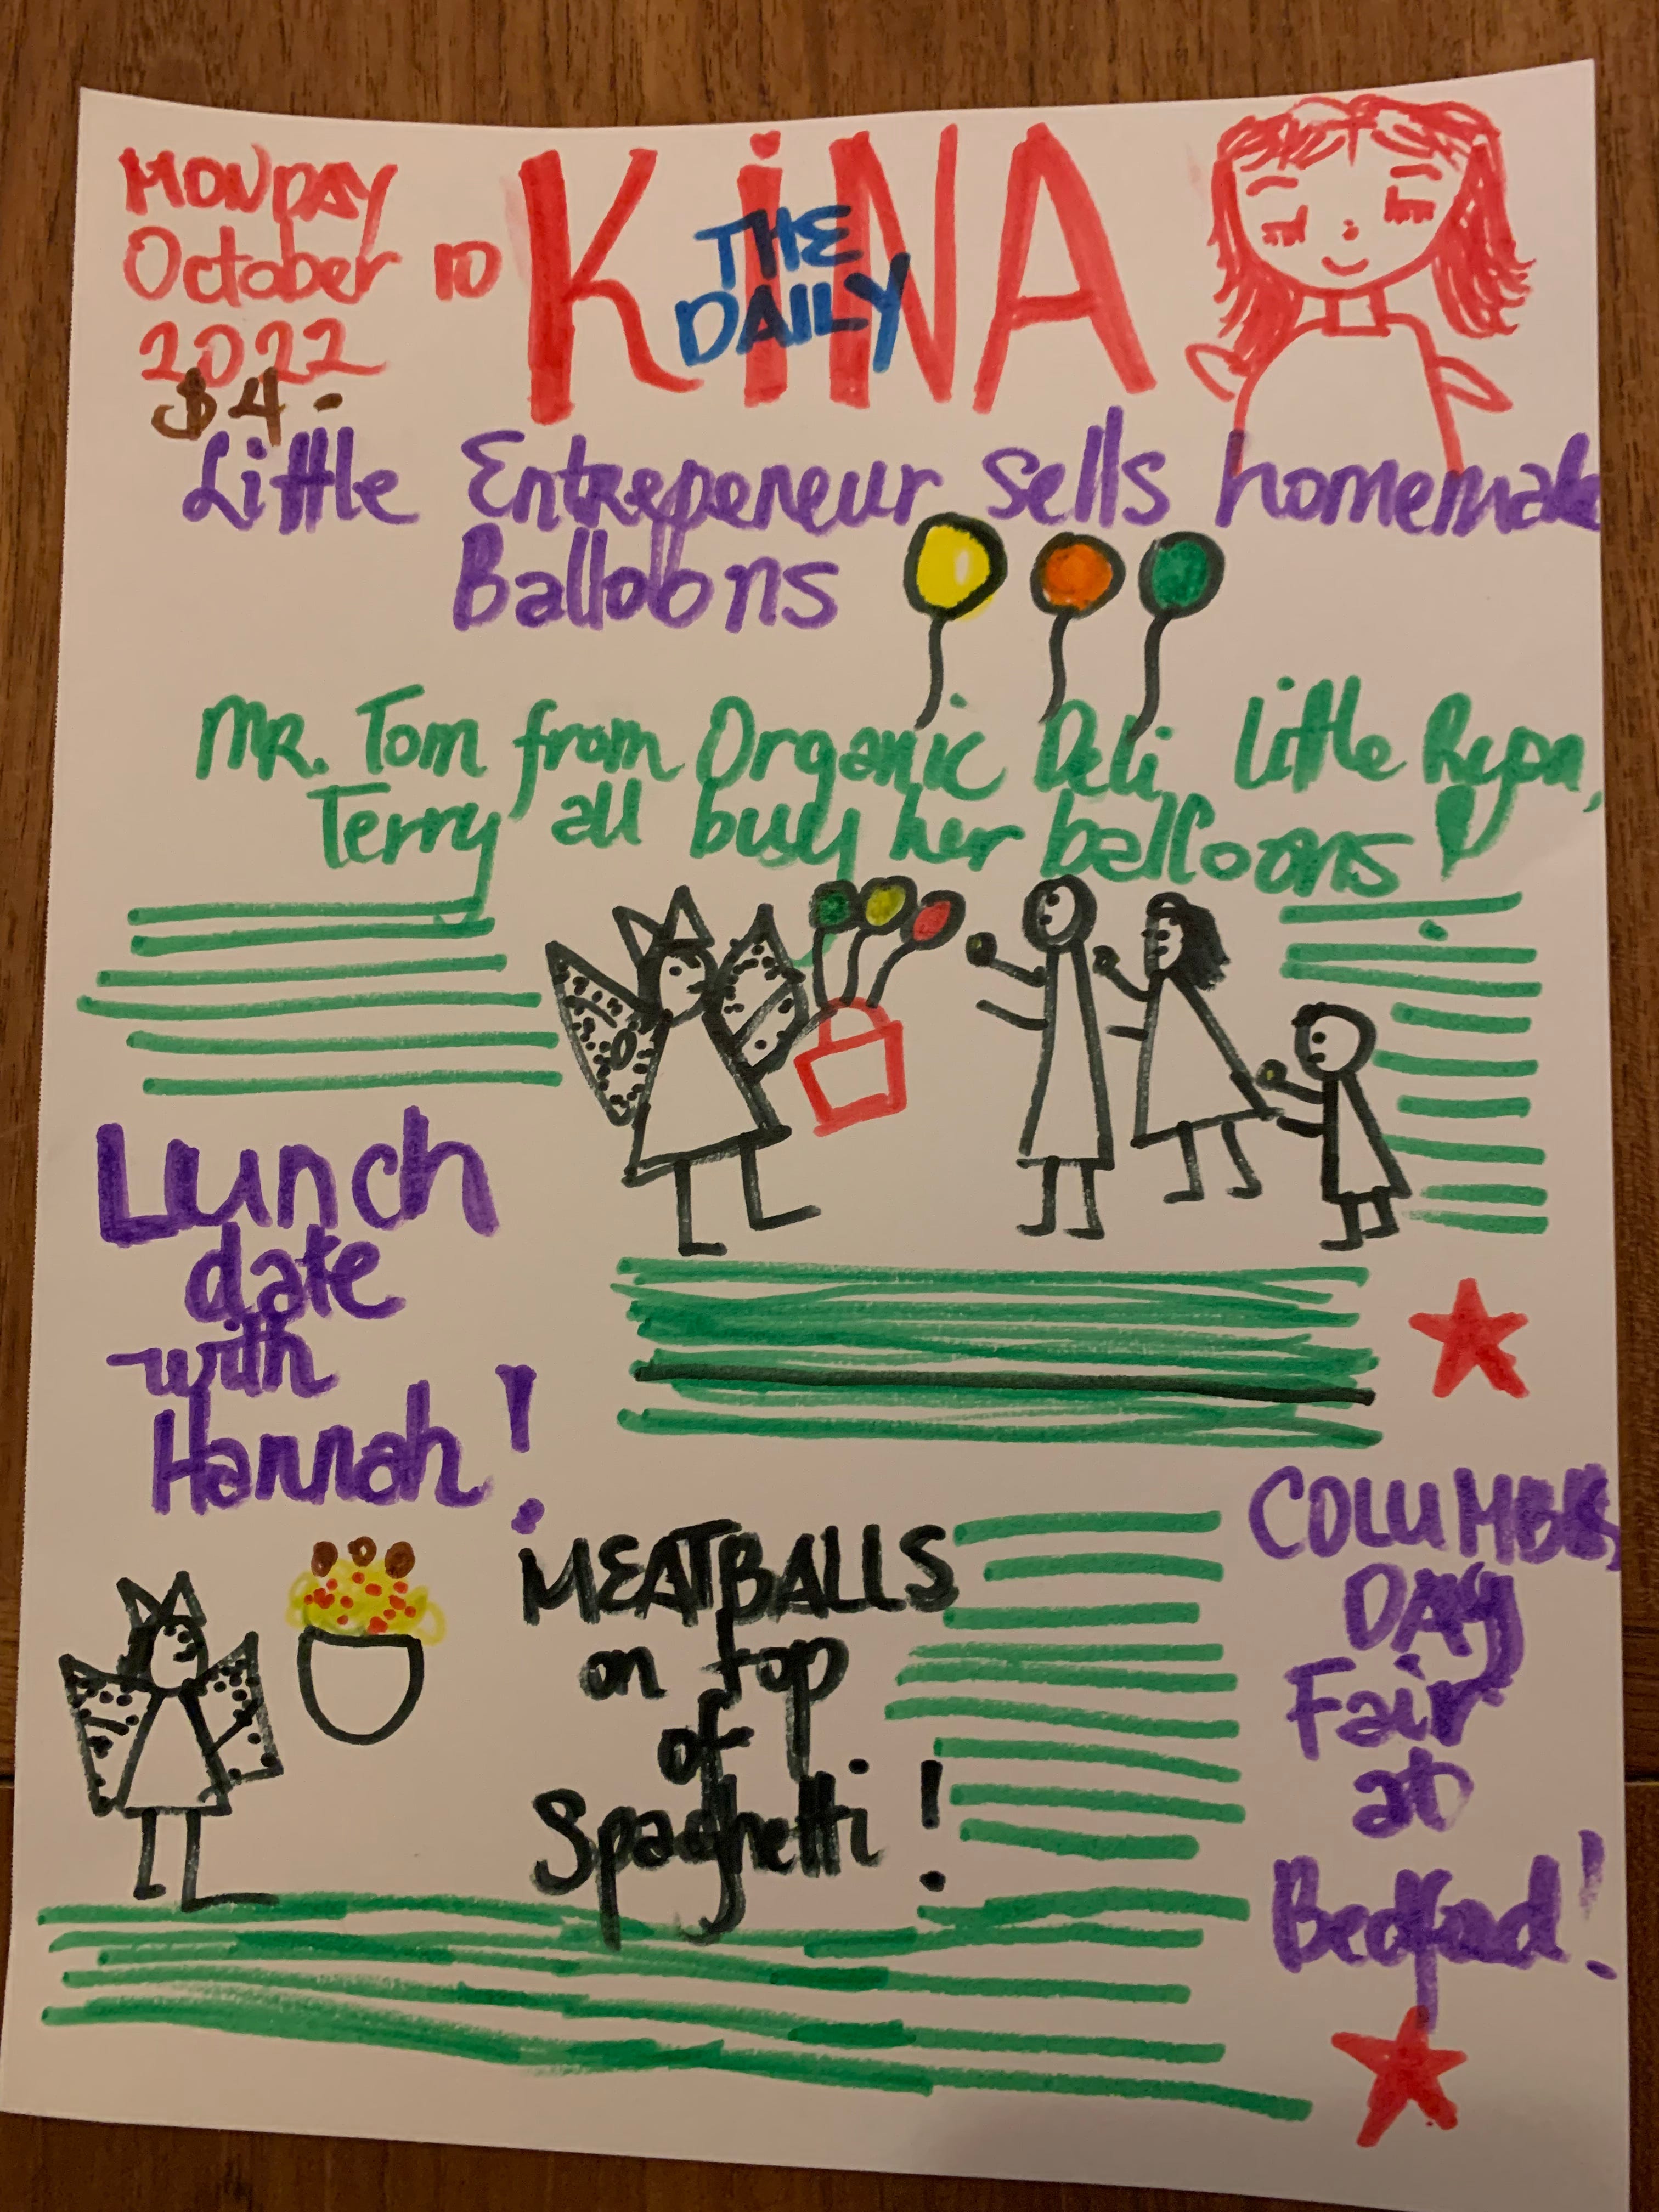 MONDAY
October 10
2022
$4.
THE
DAILY
KiNA
Little Entrepeneur sells homemade
Balloons
MR. Tom from Organic Deli, Little Ryan,
Terry all buy her balloons!
Lunch
date
with
Hannah!
MEATBALLS
on top
of
Spaghetti!
COLUMBUS
DAY
Fair
at
Bedford!